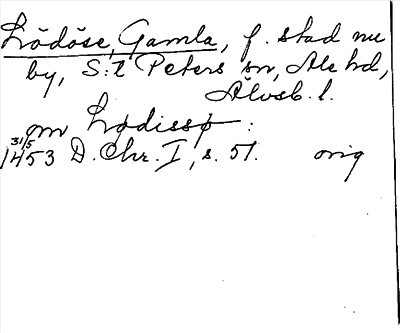 Lödöse, Gamla, f. stad nu
by, S:t Peters sn, Ale hd,
Älvsb. l.
om Lødissø:
31/5
1453 D. Chr. I, s. 51. orig